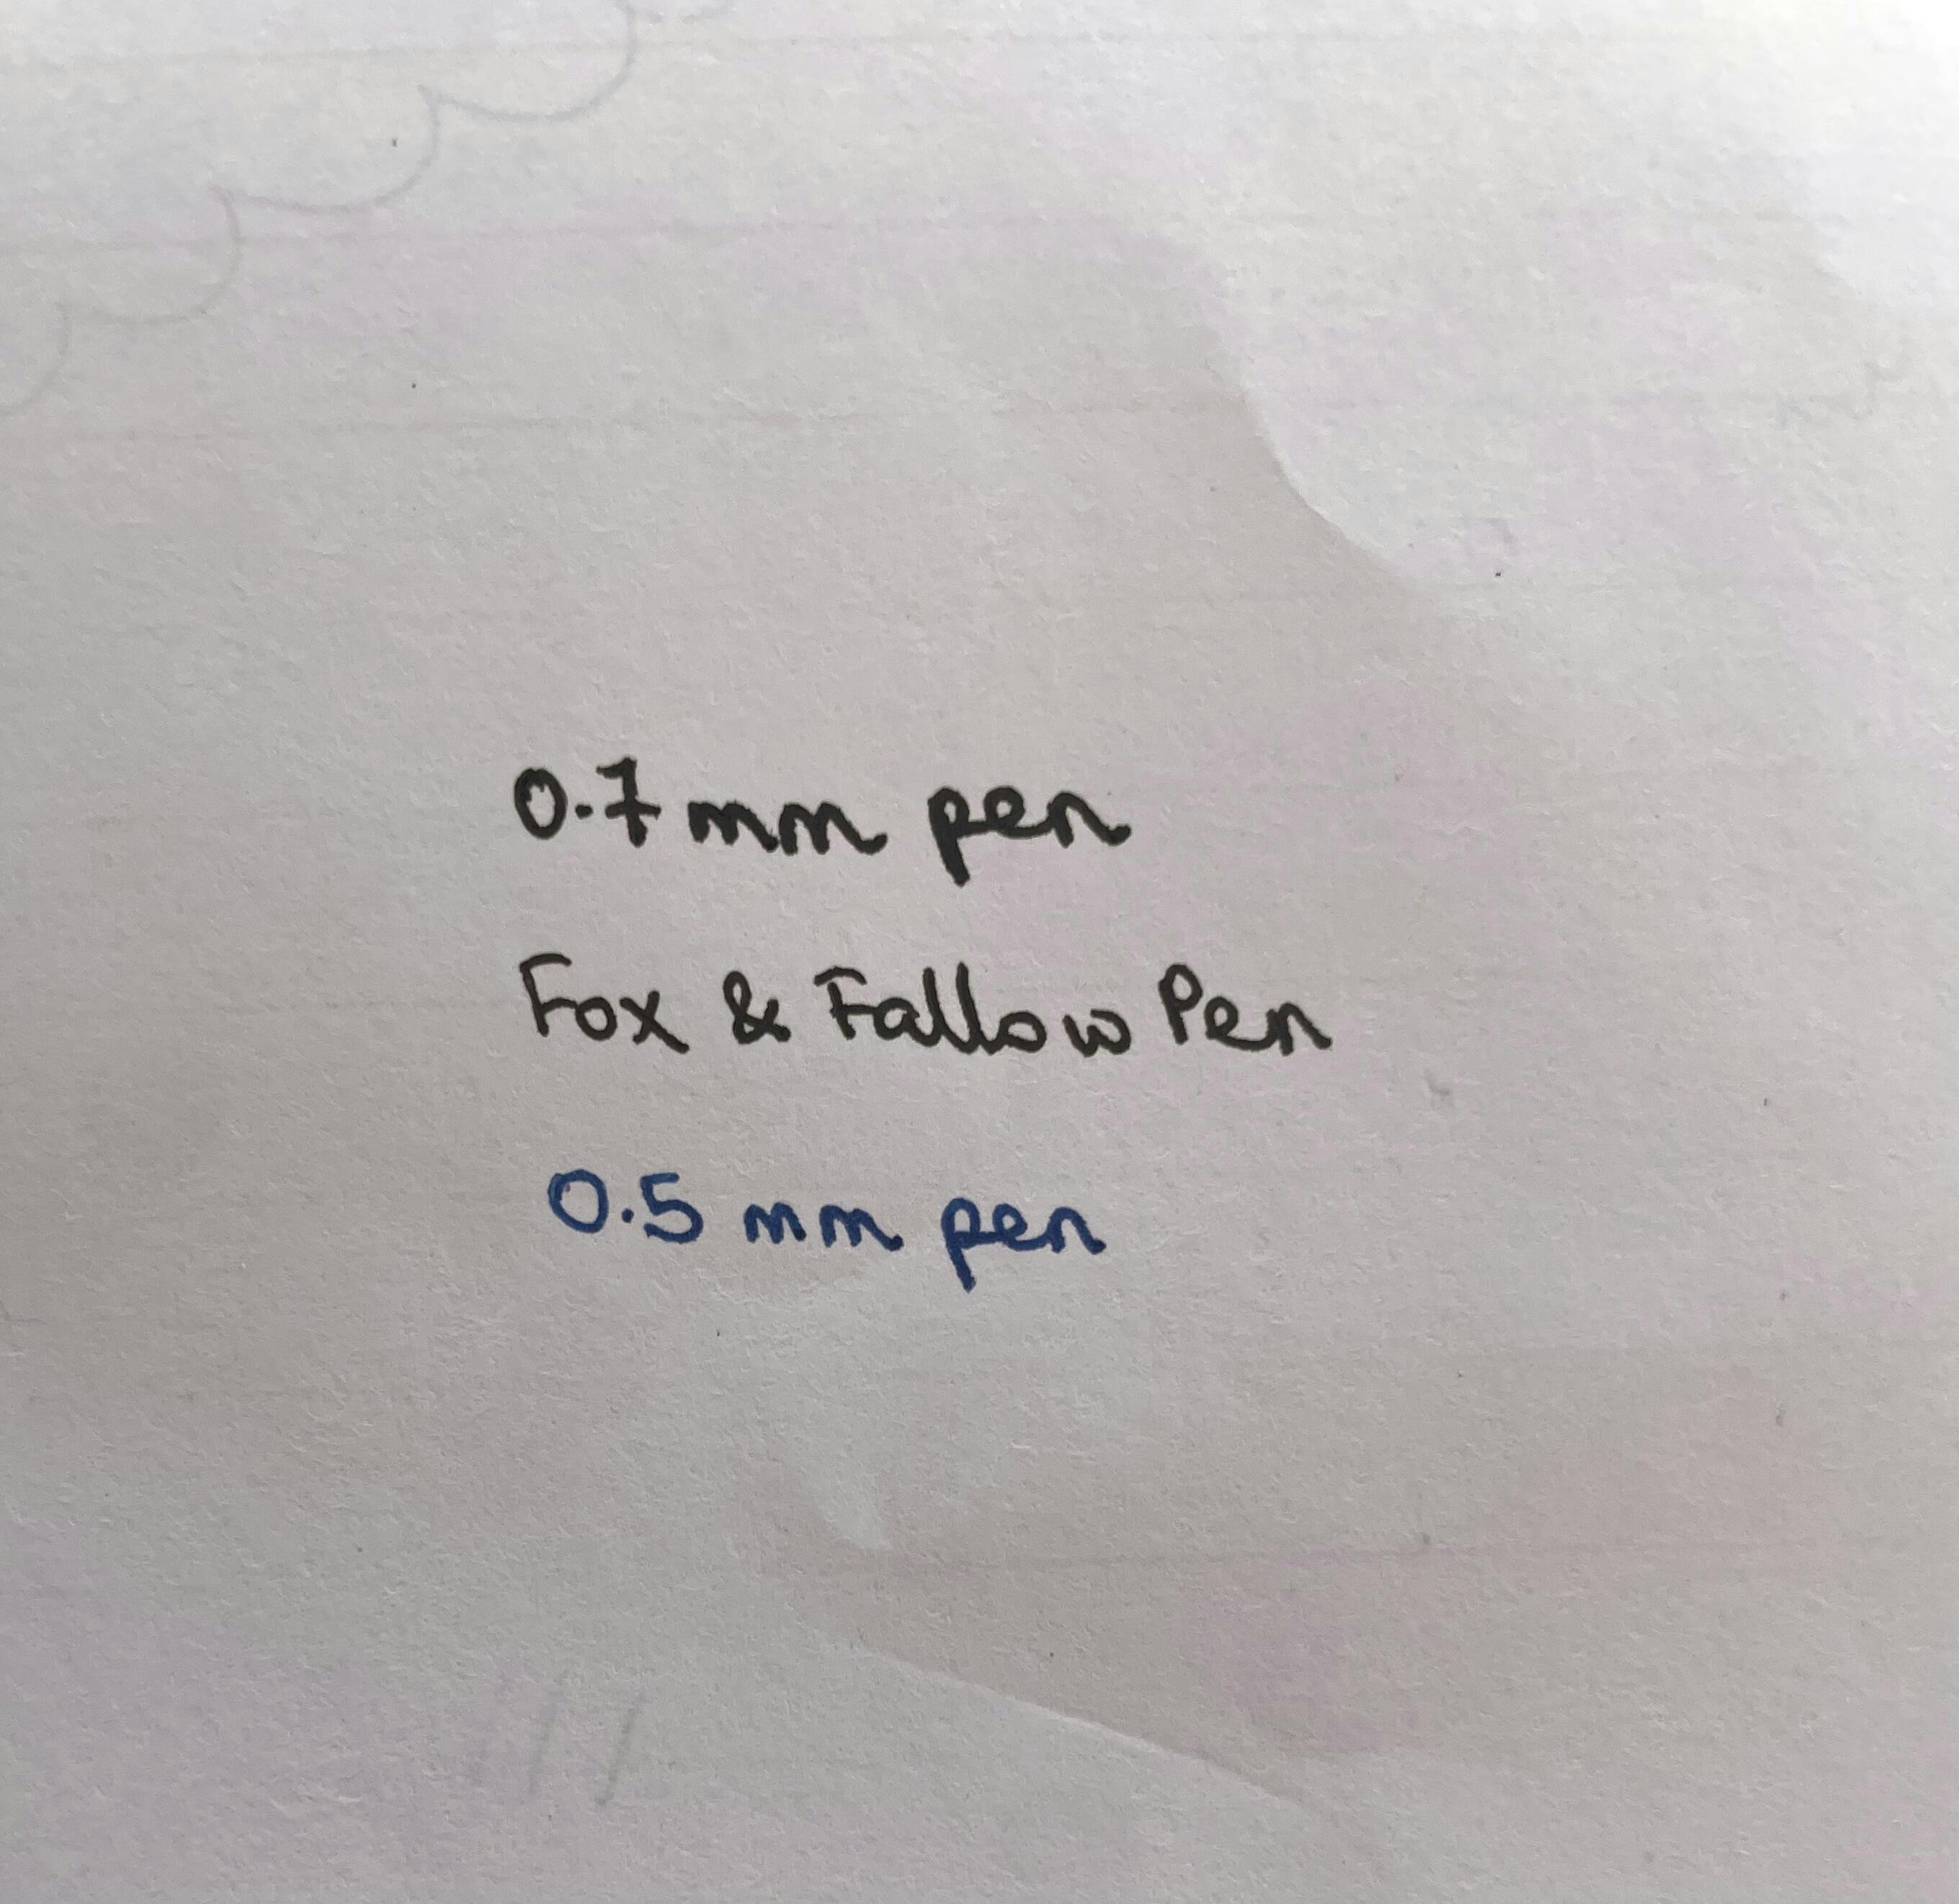 0.7 mm pen
Fox & Fallow Pen
0.5 mm pen